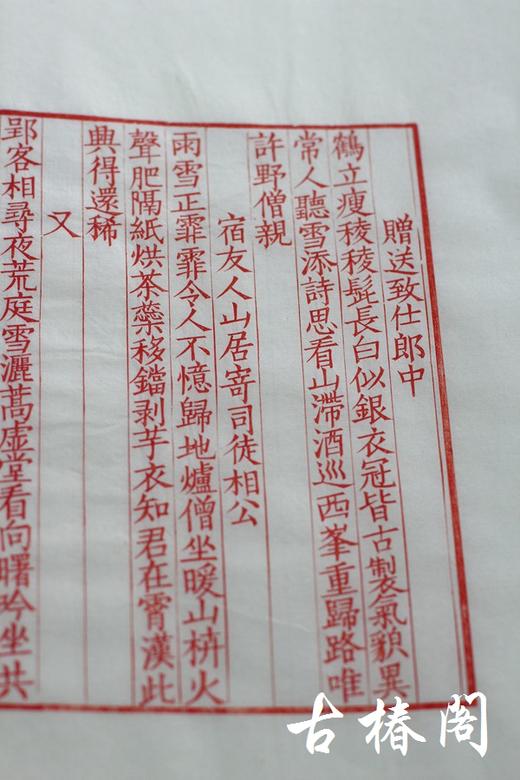 贈送致仕郎中
鶴立瘦稜稜髭長白似銀衣冠皆古製氣貌異
常人聽雪添詩思看山滯酒巡西峯重歸路唯
許野僧親
宿友人山居寄司徒相公
雨雪正霏霏令人不憶歸地爐僧坐暖山枿火
聲肥隔紙烘茶蘂移鐺剥芋衣知君在霄漢此
興得還稀
又
郢客相尋夜荒庭雪灑蒿虛堂看向曙吟坐共
古椿閣